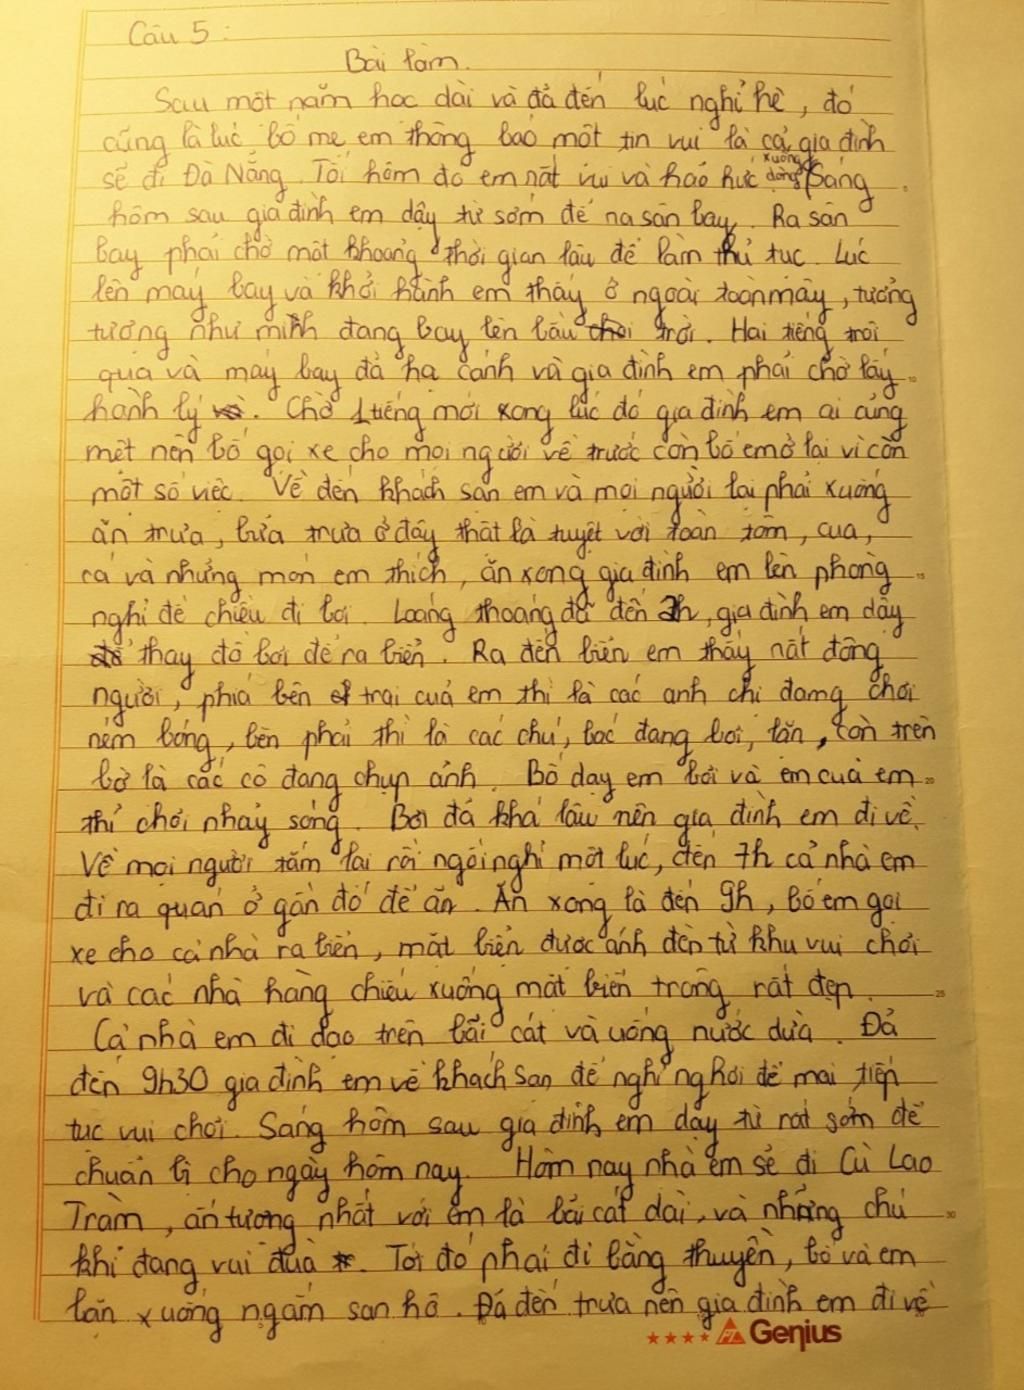 Câu 5:
Bài làm.
Sau một năm học dài và đã đến lúc nghỉ hè, đó
cũng là lúc bố mẹ em thông báo một tin vui là cả gia đình
sẽ đi Đà Nẵng. Tối hôm đó em rất vui và háo hức xuống dòng Sáng
hôm sau gia đình em dậy từ sớm để na sân bay. Ra sân
bay phải chờ một khoảng thời gian lâu để làm thủ tục. Lúc
lên máy bay và khởi hành em thấy ở ngoài toàn mây, tưởng
tượng như mình đang bay lên bầu trời. Hai tiếng trôi
qua và máy bay đã hạ cánh và gia đình em phải chờ lấy
hành lý. Chờ 1 tiếng mới xong lúc đó gia đình em ai cũng
mệt nên bố gọi xe cho mọi người về trước còn bố em ở lại vì còn
một số việc. Về đến khách sạn em và mọi người lại phải xuống
ăn trưa, bữa trưa ở đây thật là tuyệt vời toàn tôm, cua,
cá và những món em thích, ăn xong gia đình em lên phòng
nghỉ để chiều đi bơi. Loáng thoáng đã đến 2h, gia đình em dậy
thay đồ bơi để ra biển. Ra đến biển em thấy nất đông
người, phía bên trái của em thì là các anh chị đang chơi
ném bóng, bên phải thì là các chú, bác đang bơi, lặn, còn trên
bờ là các cô đang chụp ảnh. Bố dạy em bơi và em của em
thì chơi nhảy sóng. Bơi đã khá lâu nên gia đình em đi về.
Về mọi người tắm lại rồi ngồi nghỉ một lúc, đến 7h cả nhà em
đi ra quán ở gần đó để ăn. Ăn xong là đến 9h, bố em gọi
xe cho cả nhà ra biển, mặt biển được ánh đèn từ khu vui chơi
và các nhà hàng chiếu xuống mặt biển trông rất đẹp.
Cả nhà em đi dạo trên bãi cát và uống nước dừa. Đã
đến 9h30 gia đình em về khách sạn để nghỉ ngơi để mai tiếp
tục vui chơi. Sáng hôm sau gia đình em dậy từ rất sớm để
chuẩn bị cho ngày hôm nay. Hôm nay nhà em sẽ đi Cù Lao
Tràm, ấn tượng nhất với em là bãi cát dài, và những chú
khỉ đang vui đùa. Tới đó phải đi bằng thuyền, bố và em
lặn xuống ngắm san hô. Đã đến trưa nên gia đình em đi về
Genius